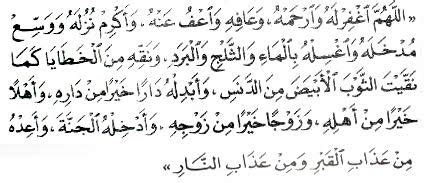 «اللَّهُمَّ ٱغْفِرْ لَهُ وَٱرْحَمْهُ، وَعَافِهِ وَٱعْفُ عَنْهُ، وَأَكْرِمْ نُزُلَهُ وَوَسِّعْ
مُدْخَلَهُ وَٱغْسِلْهُ بِٱلْمَاءِ وَٱلثَّلْجِ وَٱلْبَرَدِ، وَنَقِّهِ مِنَ ٱلْخَطَايَا كَمَا
نَقَّيْتَ ٱلثَّوْبَ ٱلْأَبْيَضَ مِنَ ٱلدَّنَسِ، وَأَبْدِلْهُ دَارًا خَيْرًا مِنْ دَارِهِ، وَأَهْلًا
خَيْرًا مِنْ أَهْلِهِ، وَزَوْجًا خَيْرًا مِنْ زَوْجِهِ، وَأَدْخِلْهُ ٱلْجَنَّةَ، وَأَعِذْهُ
مِنْ عَذَابِ ٱلْقَبْرِ وَمِنْ عَذَابِ ٱلنَّارِ»